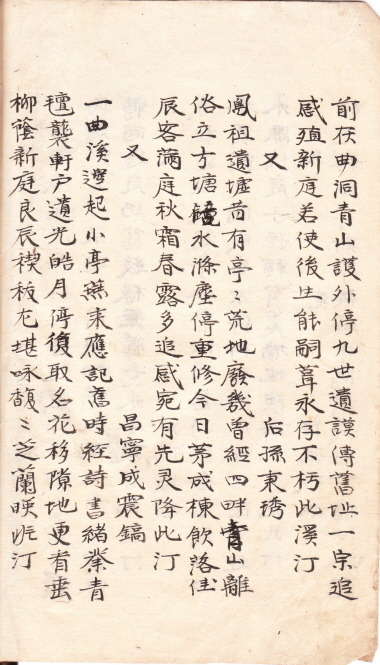 前茯曲洞青山護外停九世遺謨傳舊址一宗追
感殖新庭若使後出能嗣葺永存不朽此溪汀
又 后孫東琇
鳳祖遺墟昔有亭〻荒地廢幾曾經四畔青山離
俗立方塘水滌塵停重修今日茅成棟飲落佳
辰客滿庭秋霜春露多追感宛有先灵降此汀
又 昌寧成震鎬
一曲溪邊起小亭燕来應記舊時經詩書緒業青
氊襲軒戶遺光皓月停復取名花移隙地更有垂
柳蔭新庭良辰禊祓尤堪咏馥〻芝蘭暎汀